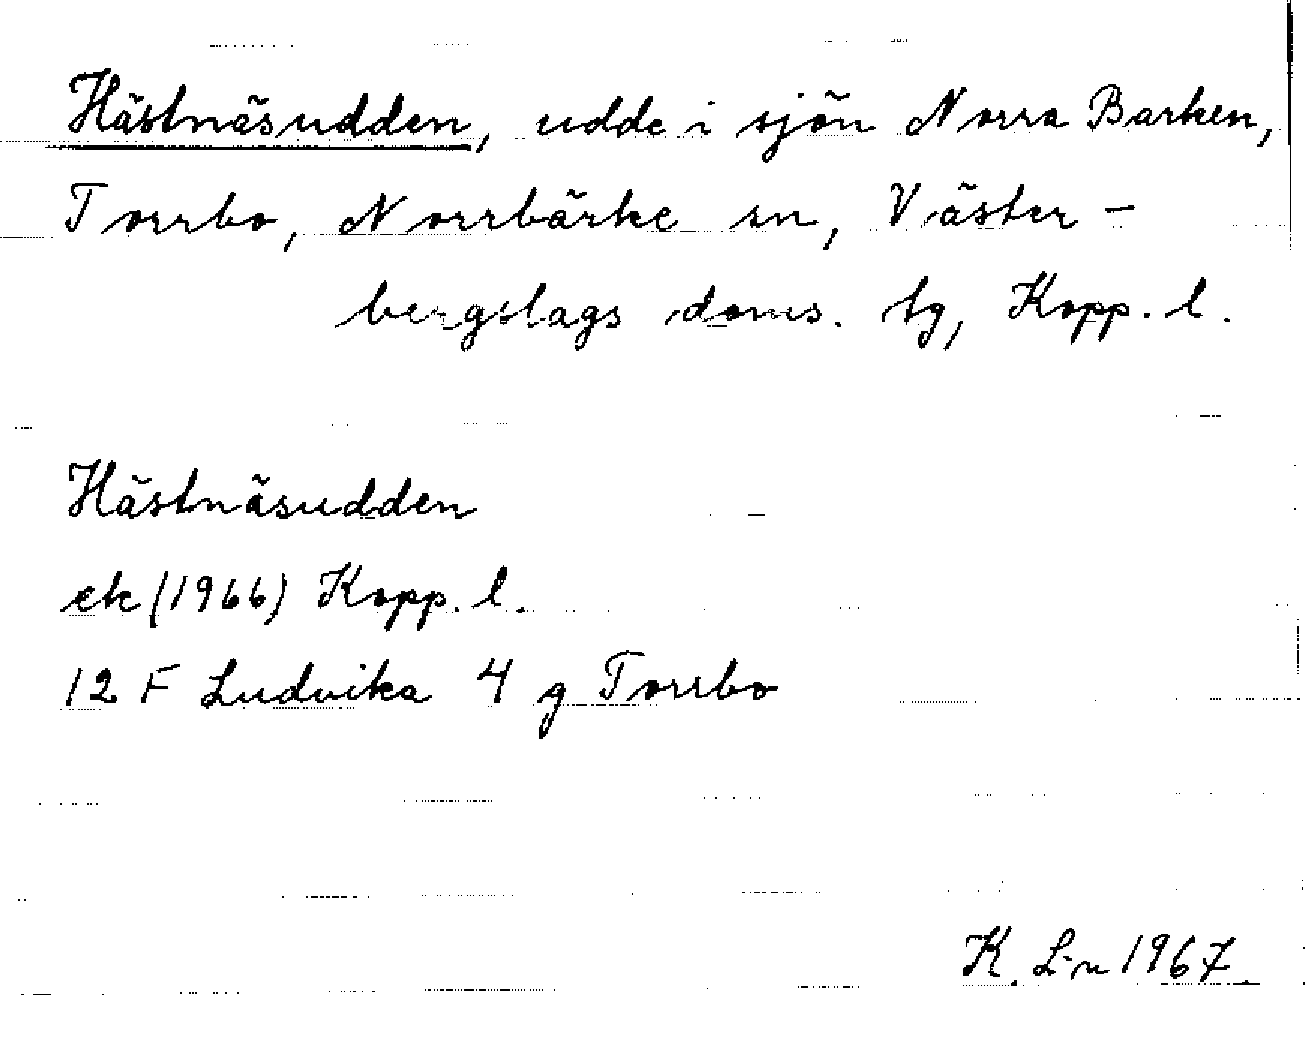 Hästnäsudden, udde i sjön Norra Barken,
Torrbo, Norrbärke sn, Väster-
bergslags doms. tg, Kopp. l.
Hästnäsudden
ek (1966) Kopp. l.
12 F Ludvika 4 g Torrbo
K. L-n 1967.